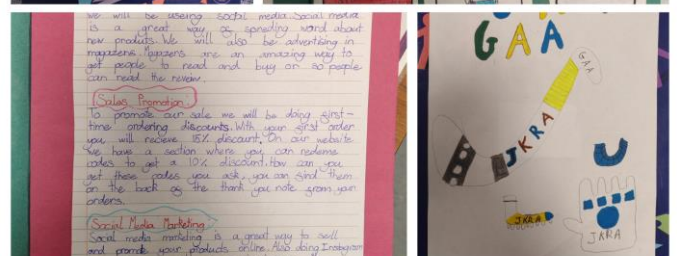 we will be useing social media. Social media
is a great way of spreding word about
new products. We will also be advertising in
magazens. Magazens are an amazing way to
get people to read and buy or so people
can read the review.
Sales Promotion
To promote our sale we will be doing first-
time ordering discounts. With your first order
you will recieve 15% discount. On our website
we have a section where you can redeme
codes to get a 10% discount. How can you
get these codes you ask, you can find them
on the back of the thank you note from your
orders.
Social Media Marketing
Social media marketing is a great way to sell
and promote your products online. Also doing Instagram
GAA
GAA
JKRA
JKRA
JKRA